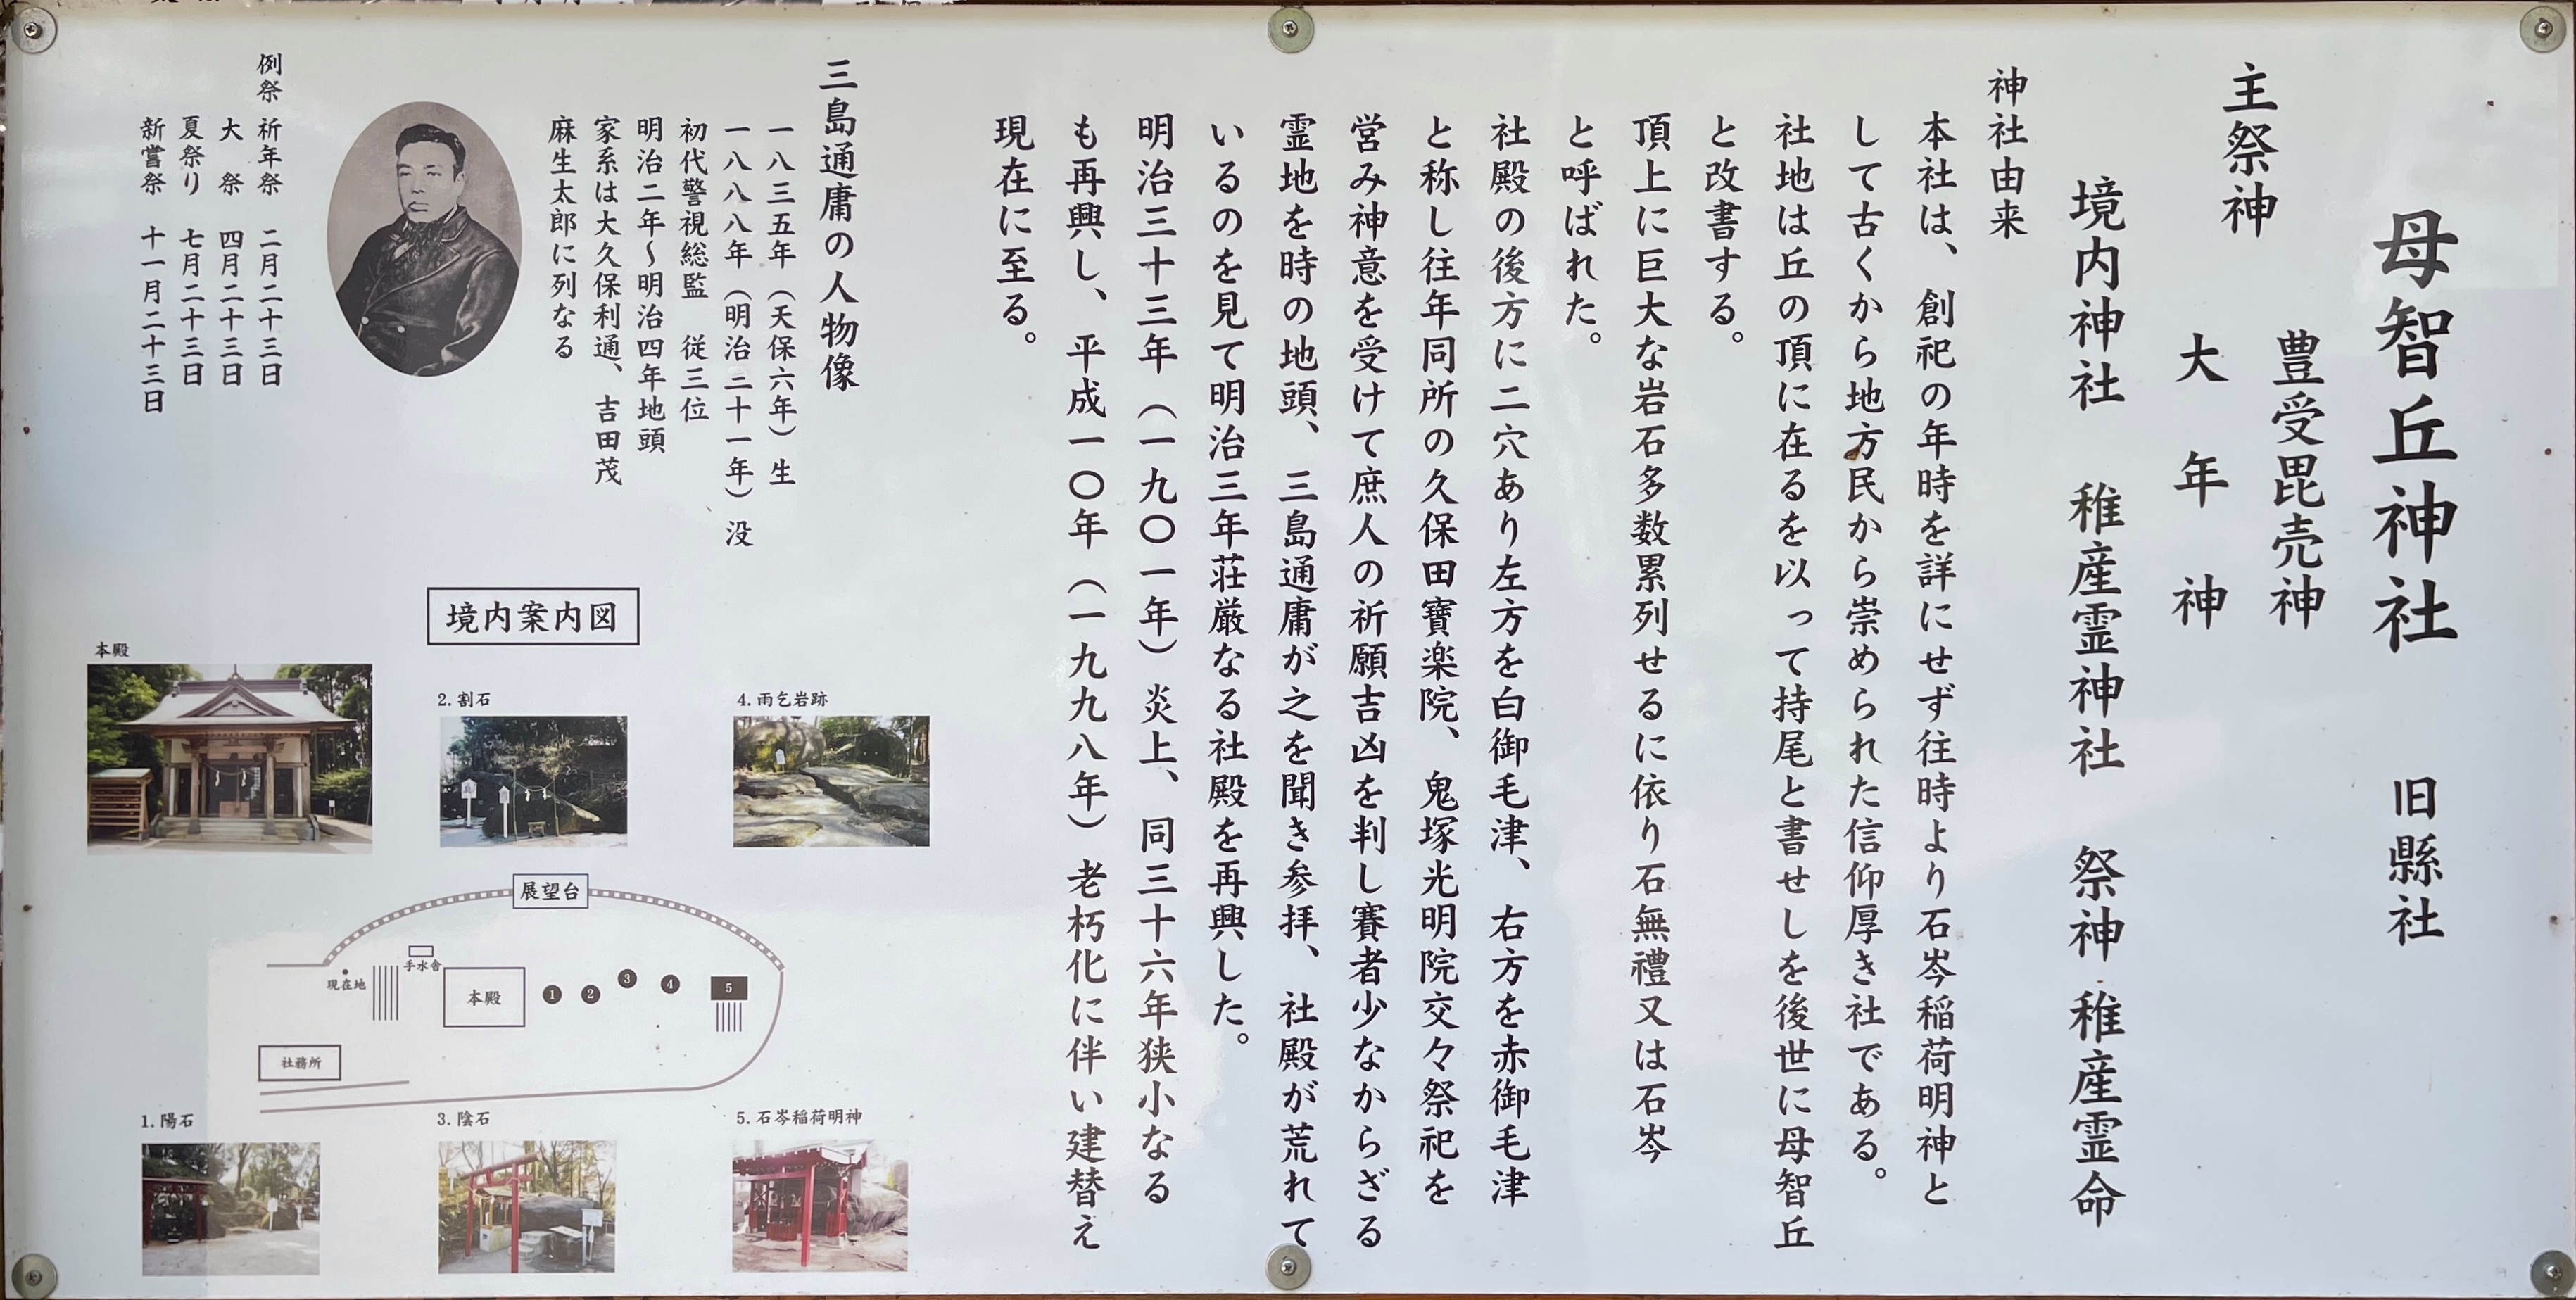 母智丘神社 旧縣社
主祭神
豊受毘売神
大年神
境内神社 稚産霊神社 祭神 稚産霊命
神社由来
本社は、創祀の年時を詳にせず往時より石岑稲荷明神と
して古くから地方民から崇められた信仰厚き社である。
社地は丘の頂に在るを以って持尾と書せしを後世に母智丘
と改書する。
頂上に巨大な岩石多数累列せるに依り石無禮又は石岑
と呼ばれた。
社殿の後方に二穴あり左方を白御毛津、右方を赤御毛津
と称し往年同所の久保田寶楽院、鬼塚光明院交々祭祀を
営み神意を受けて庶人の祈願吉凶を判し賽者少なからざる
霊地を時の地頭、三島通庸が之を聞き参拝、社殿が荒れて
いるのを見て明治三年荘厳なる社殿を再興した。
明治三十三年（一九〇一年）炎上、同三十六年狭小なる
も再興し、平成一〇年（一九九八年）老朽化に伴い建替え
現在に至る。
三島通庸の人物像
一八三五年（天保六年）生
一八八八年（明治二十一年）没
初代警視総監 従三位
明治二年〜明治四年地頭
家系は大久保利通、吉田茂
麻生太郎に列なる
例祭 祈年祭 二月二十三日
大祭 四月二十三日
夏祭り 七月二十三日
新嘗祭 十一月二十三日
境内案内図
本殿
2.割石
4.雨乞岩跡
展望台
手水舎
現在地
本殿
1
2
3
4
5
社務所
1.陽石
3.陰石
5.石岑稲荷明神